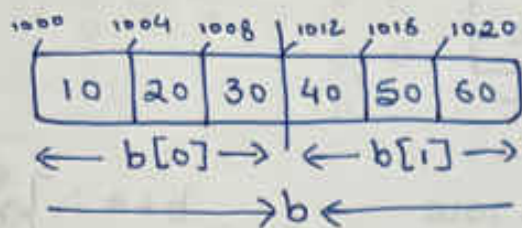 1000 1004 1008 1012 1016 1020
10 20 30 40 50 60
← b[0] → ← b[1] →
→ b ←